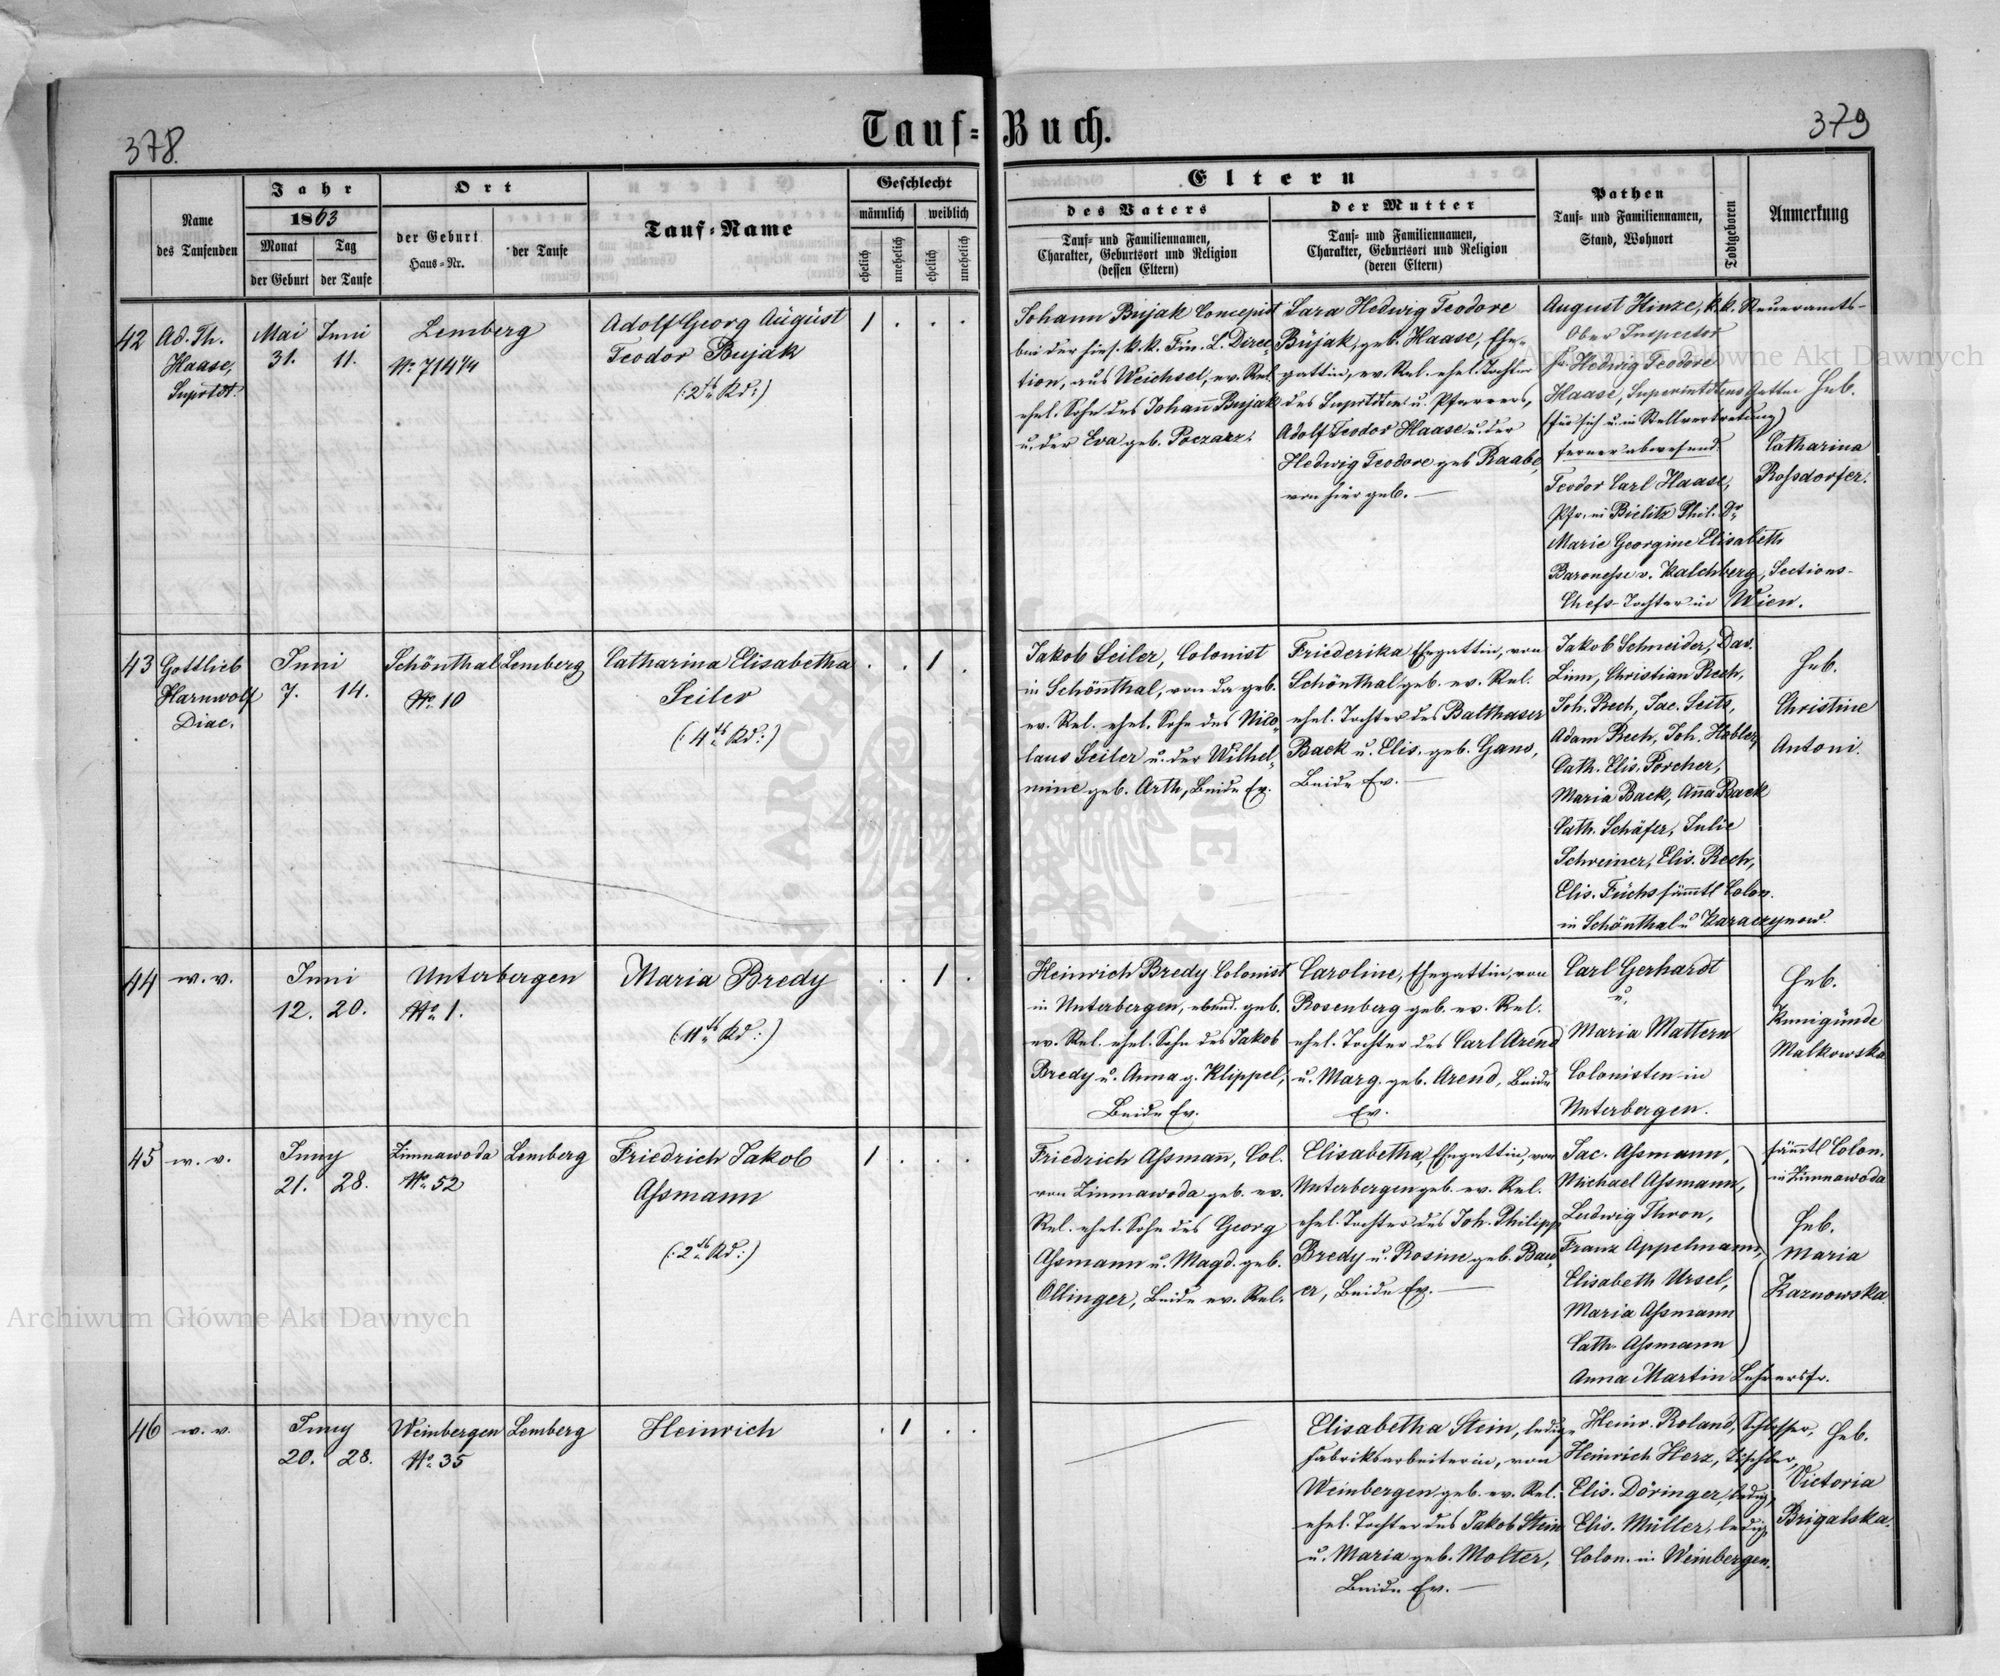 378.
379
Tauf-Buch.
Name
des Taufenden
Jahr
1863
Monat
Tag
der Geburt
der Taufe
Ort
der Geburt
Haus-Nr.
der Taufe
Tauf-Name
Geschlecht
männlich
weiblich
ehelich
unehelich
ehelich
unehelich
Eltern
des Vaters
Tauf- und Familiennamen,
Charakter, Geburtsort und Religion
(dessen Eltern)
der Mutter
Tauf- und Familiennamen,
Charakter, Geburtsort und Religion
(deren Eltern)
Pathen
Tauf- und Familiennamen,
Stand, Wohnort
Todtgeboren
Anmerkung
42
Ad. Th.
Haase,
Suprtdt.
Mai
31.
Juni
11.
Lemberg
No. 714 1/4
Adolf Georg August
Teodor Bujak
(: 2tes Kd :)
1 . . .
Johann Bujak Concepist
bei der hies. k.k. Fin. L. Direc-
tion, aus Weichsel, ev. Rel.
ehel. Sohn des Johann Bujak
u. der Eva geb. Poczarz.
Sara Hedwig Teodore
Bujak, geb. Haase, Ehe-
gattin, ev. Rel. ehel. Tochter
des Suprtdten u. Pfarrers,
Adolf Teodor Haase u. der
Hedwig Teodore geb Raabe,
von hier geb. —
August Hinze, k.k. Steueramts-
Ober Inspector
Fr. Hedwig Teodore
Haase, Superintdtens Gattin
(für sich u. in Stellvertretung)
ferner abwesend.
Teodor Carl Haase,
Pfr. in Bielitz Phil. Dr
Marie Georgine Elisabeth
Baronesse v. Kalchberg, Sections-
Chefs-Tochter in Wien.
Heb.
Catharina
Rossdorfer.
43
Gottlieb
Harnwolf
Diac.
Juni
7.
14.
Schönthal
No. 10
Lemberg
Catharina Elisabetha
Seiler
(: 4tes Kd :)
. . 1 .
Jakob Seiler, Colonist
in Schönthal, von da geb.
ev. Rel. ehel. Sohn des Nico-
laus Seiler u. der Wilhel-
mine geb. Arth, Beide Ev.
Friederika Ehegattin, von
Schönthal geb. ev. Rel.
ehel. Tochter des Balthaser
Back u. Elis. geb. Gans,
Beide Ev. —
Jakob Schneider, Das.
Linn, Christian Rech,
Joh. Rech, Jac. Seits,
Adam Rech, Joh. Hobler,
Cath. Elis. Porcher,
Maria Back, Anna Back
Cath. Schäfer, Julie
Schreiner, Elis. Rech,
Elis. Fuchs sämmtl Colon.
in Schönthal u Karaczynow.
Heb.
Christine
Antoni.
44
w. v.
Juni
12.
20.
Unterbergen
No. 1.
Maria Bredy
(: 11tes Kd :)
. . 1 .
Heinrich Bredy Colonist
in Unterbergen, ebend. geb.
ev. Rel. ehel. Sohn des Jakob
Bredy u. Anna g. Klippel,
Beide Ev.
Caroline, Ehegattin, von
Rosenberg geb. ev. Rel.
ehel. Tochter des Carl Arend
u. Marg. geb. Arend, Beide
Ev.
Carl Gerhardt
u.
Maria Mattern
Colonisten in
Unterbergen.
Heb.
Kunigunde
Malkowska
45
w. v.
Juny
21.
28.
Zimnawoda
No. 52
Lemberg
Friedrich Jakob
Assmann
(: 2tes Kd :)
1 . . .
Friedrich Assmann, Col.
von Zimnawoda geb. ev.
Rel. ehel. Sohn des Georg
Assmann u. Magd. geb.
Ollinger, Beide ev. Rel.
Elisabetha, Ehegattin, von
Unterbergen geb. ev. Rel.
ehel. Tochter des Joh. Philipp
Bredy u. Rosine geb. Bau-
er, Beide Ev. —
Jac. Assmann,
Michael Assmann,
Ludwig Thron,
Franz Appelmann,
Elisabeth Ursel,
Maria Assmann
Cath. Assmann
Anna Martin Lehrersfr.
sämmtl Colon.
in Zimnawoda
Heb.
Maria
Kaznowska.
46
w. v.
Juny
20.
28.
Weinbergen
No. 35
Lemberg
Heinrich
. 1 . .
Elisabetha Stein, ledige
Fabriksarbeiterin, von
Weinbergen geb. ev. Rel.
ehel. Tochter des Jakob Stein
u. Maria geb. Molter,
Beide Ev. —
Heinr. Roland, Schlosser,
Heinrich Herz, Tischler,
Elis. Döringer, ledig,
Elis. Müller, ledig
Colon. in Weinbergen.
Heb.
Victoria
Brigalska.
Archiwum Główne Akt Dawnych
Archiwum Główne Akt Dawnych